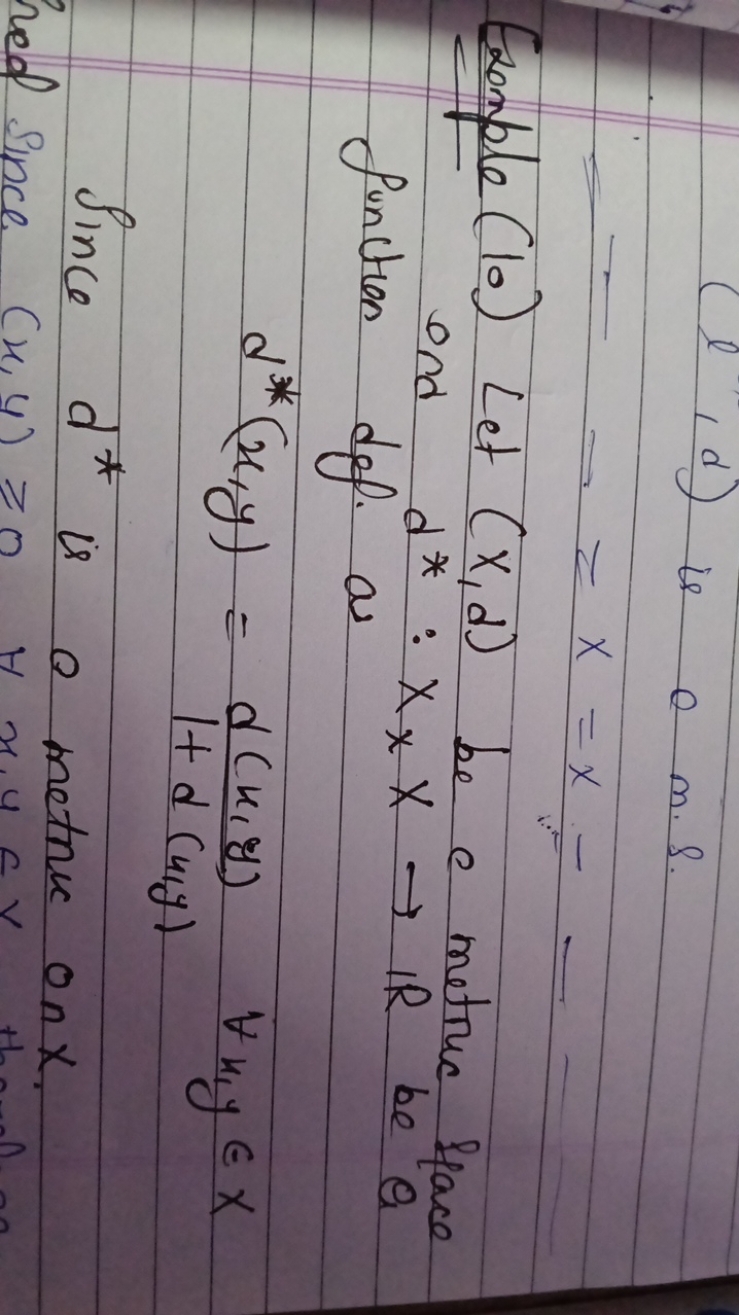 , d) is a m.s.
— — — = X = X — — —
Example (10) Let (X, d) be a metric space
and d* : X x X → IR be a
function def. as
d*(x, y) = d(x, y) / 1 + d(x, y) ∀ x, y ∈ X
Since d* is a metric on X.
Since (x, y) ≥ 0 ∀ x, y ∈